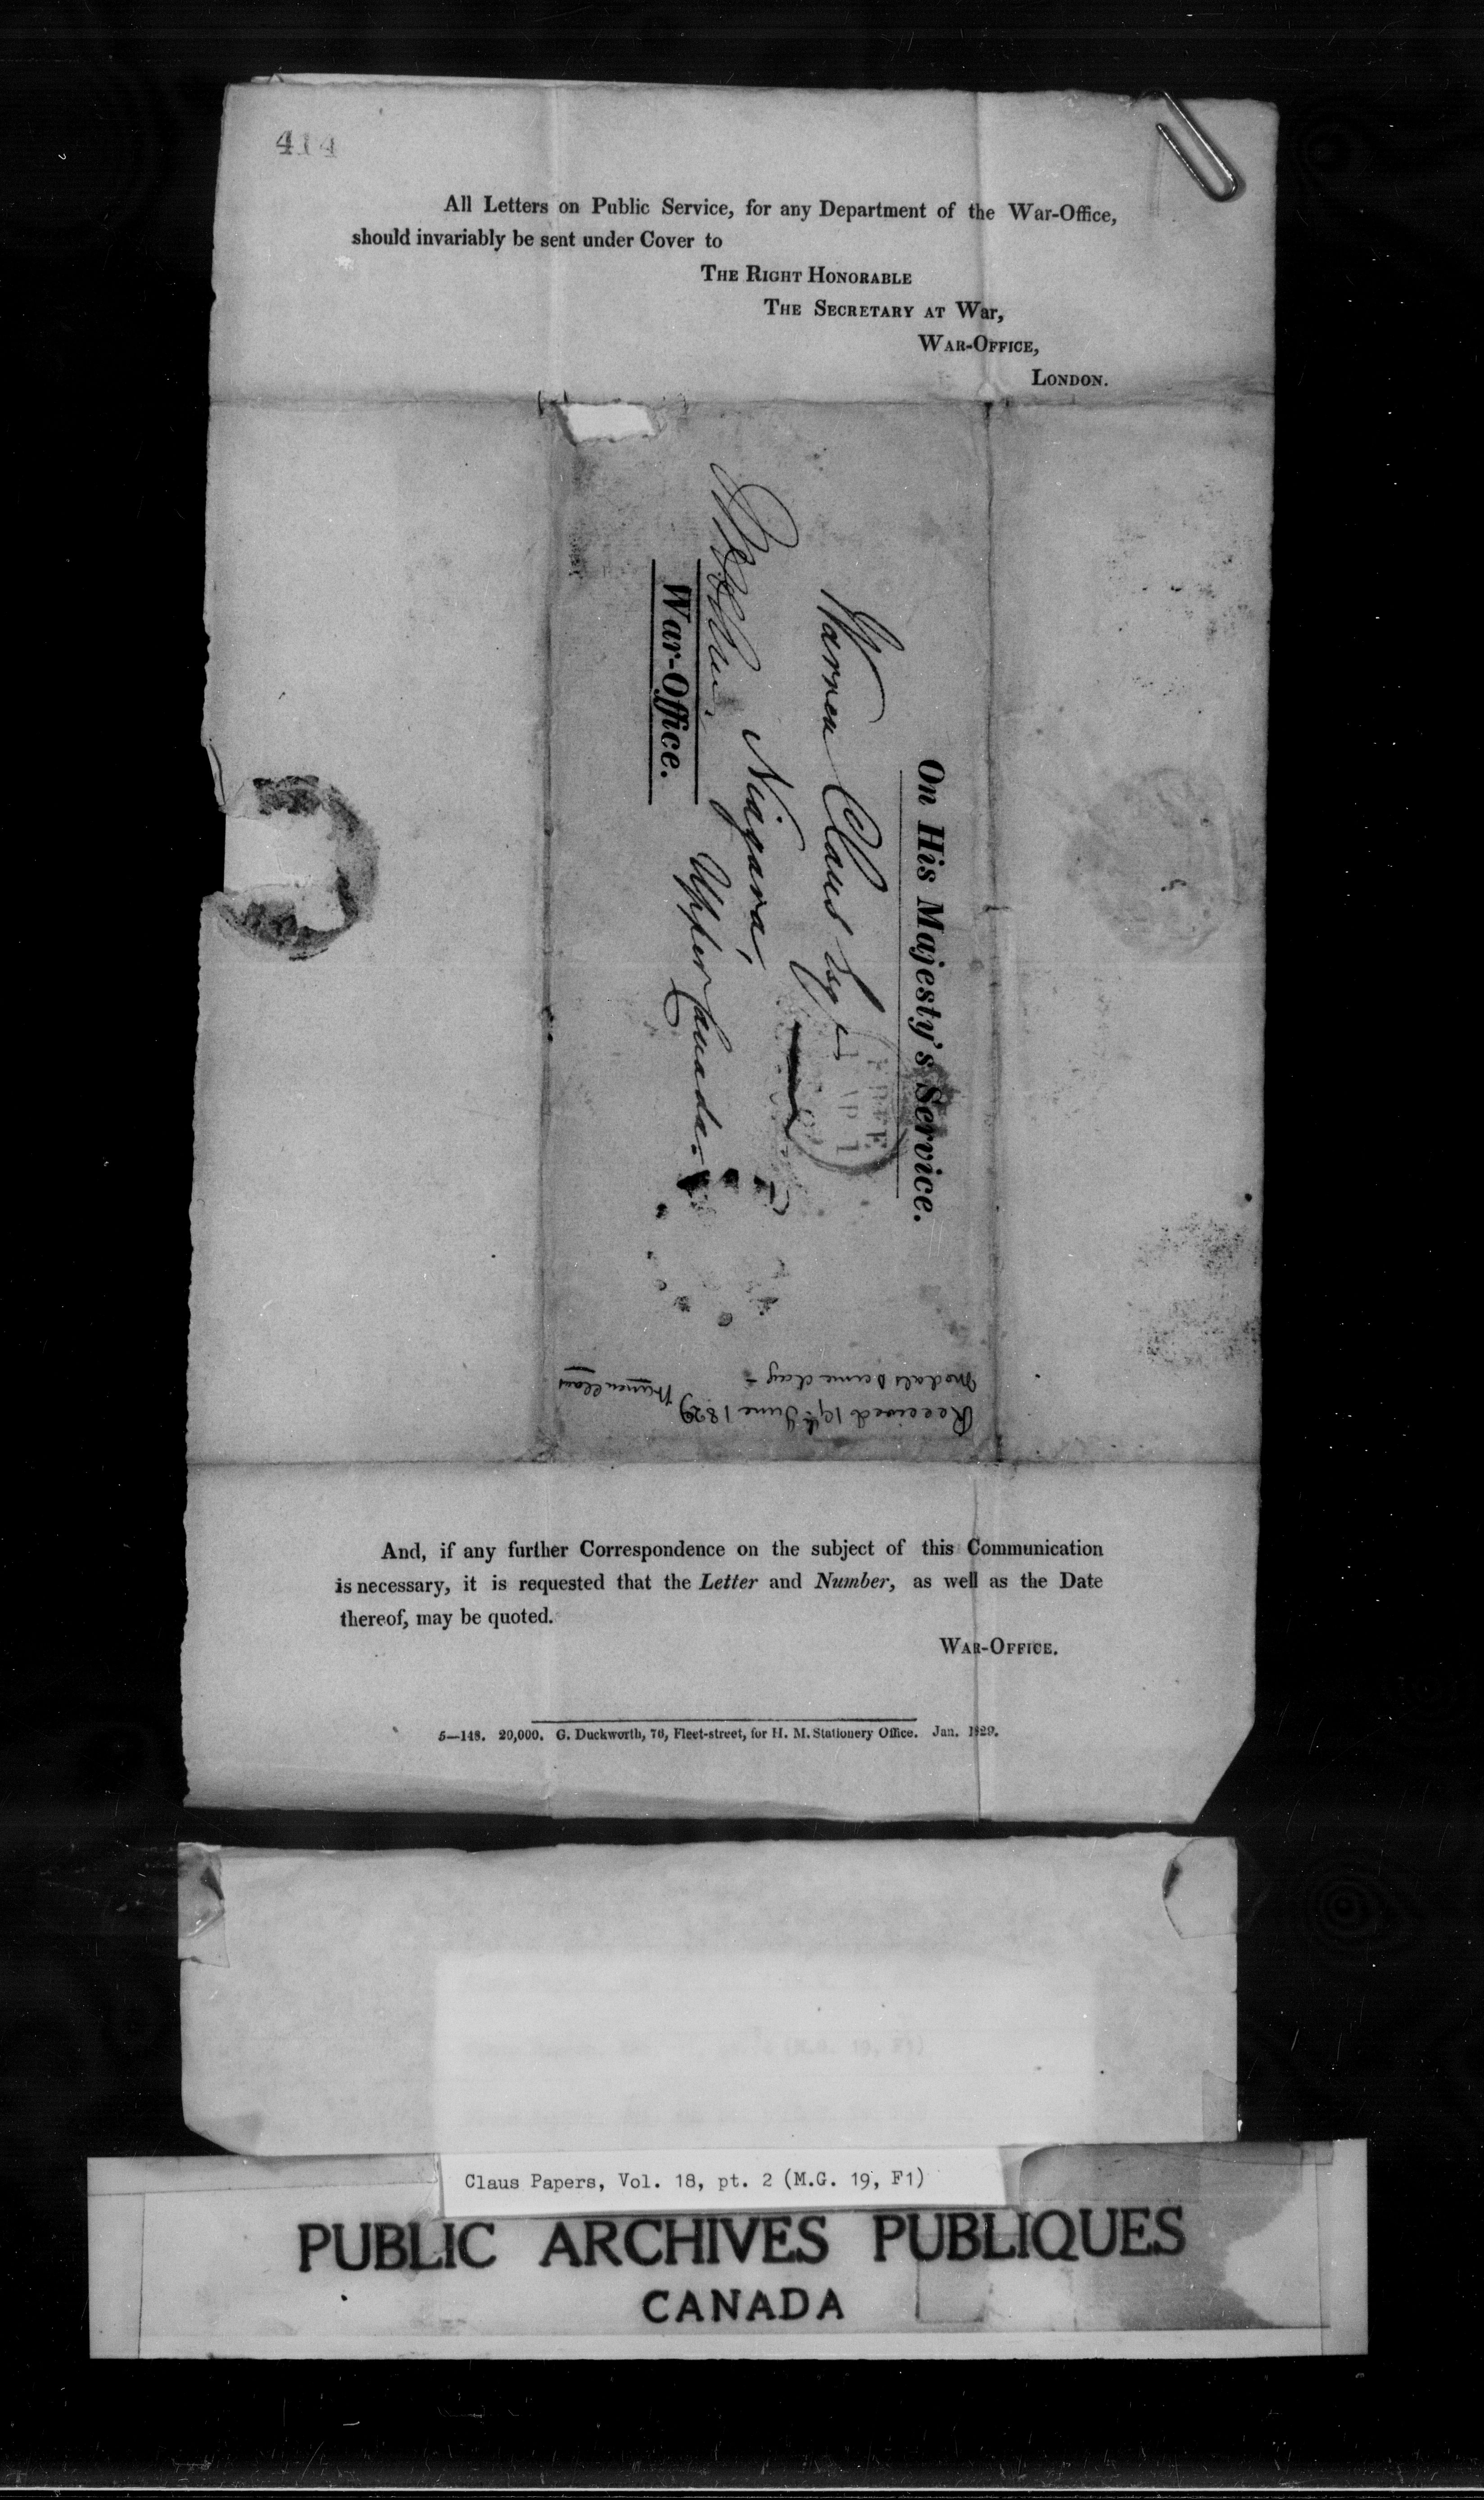 414
All Letters on Public Service, for any Department of the War-Office,
should invariably be sent under Cover to
THE RIGHT HONORABLE
THE SECRETARY AT War,
WAR-OFFICE,
LONDON.
On His Majesty's Service.
Warren Claus Esqr
Niagara,
Upper Canada.
War-Office.
Received 19th June 1829
medals same day -
Warren Claus
And, if any further Correspondence on the subject of this Communication
is necessary, it is requested that the Letter and Number, as well as the Date
thereof, may be quoted.
WAR-OFFICE.
5—148. 20,000. G. Duckworth, 76, Fleet-street, for H. M. Stationery Office. Jan. 1829.
(M.G. 19, F1)
Claus Papers, Vol. 18, pt. 2 (M.G. 19, F1)
PUBLIC ARCHIVES PUBLIQUES
CANADA